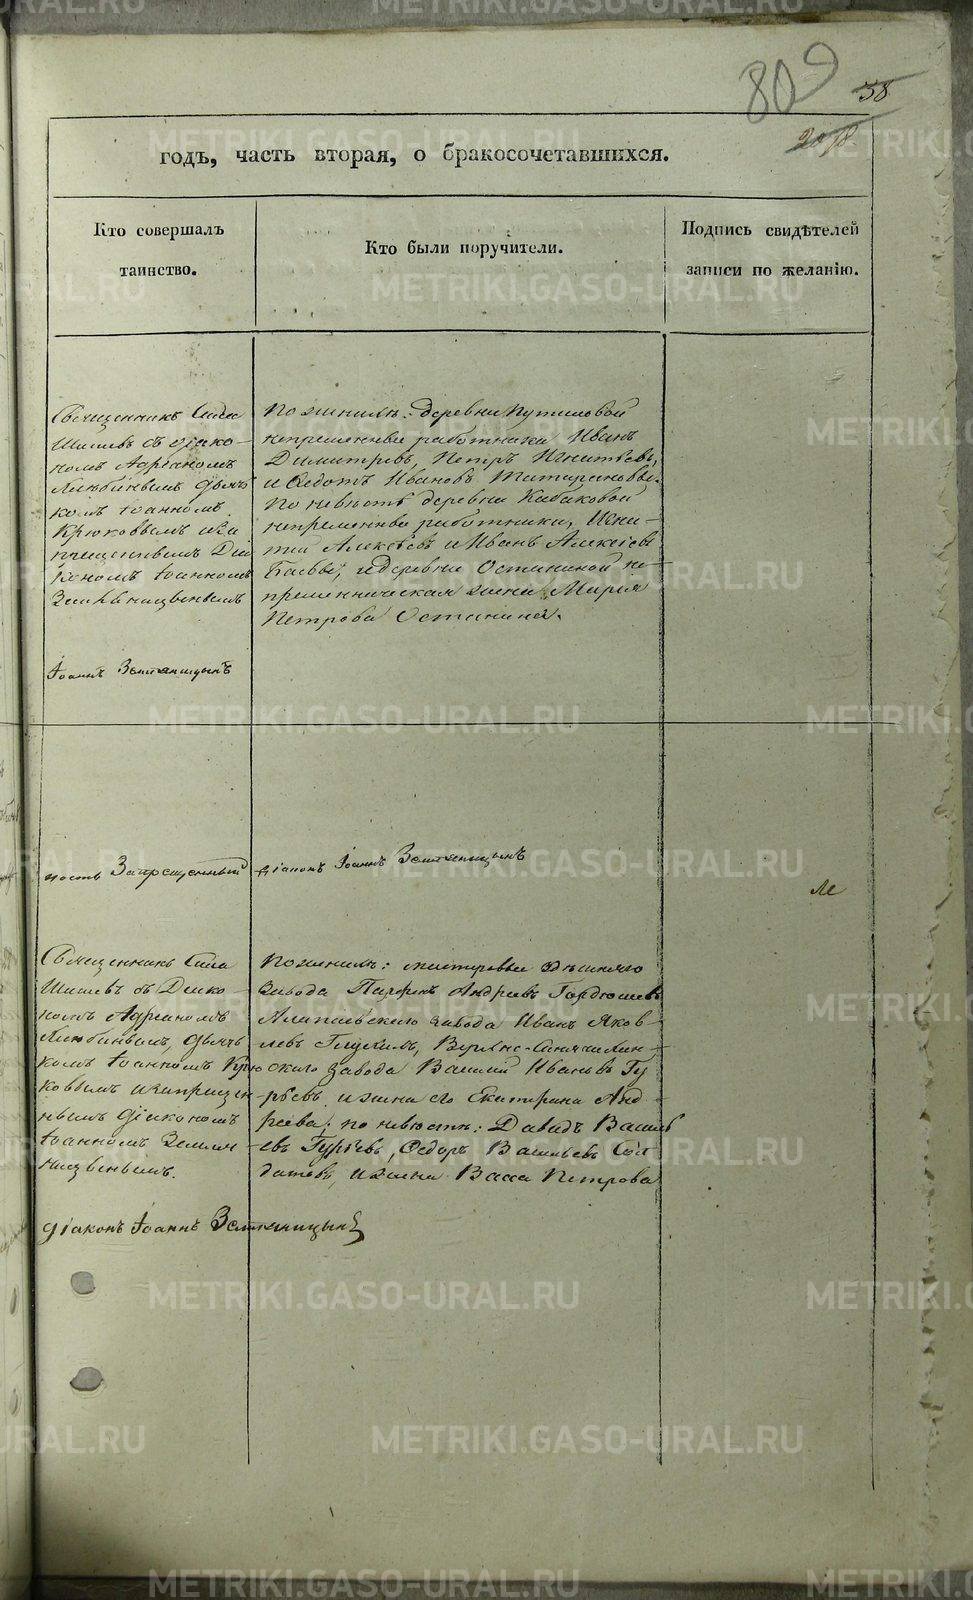 809
38
годъ, часть вторая, о бракосочетавшихся.
Кто совершалъ
таинство.
Кто были поручители.
Подпись свидѣтелей
записи по желанію.
Священникъ Сила
Шишевъ съ діако-
номъ Адріаномъ
Любинымъ дьяч
комъ Іоанномъ
Крюковымъ и за
прещеннымъ Діа
кономъ Іоанномъ
Земляницынымъ
Іоаннъ Земляницынъ
По женихѣ: деревни Путиловой
непременные работники Иванъ
Димитріевъ, Петръ Игнатьевъ,
и Федотъ Ивановъ Татариновы.
По невѣстѣ деревни Кабаковой
непременные работники, Игна-
тій Алексѣевъ и Иванъ Алексѣевъ
Баевы, и деревни Останиной не-
пременническая жена Марія
Петрова Останина.
ность Запрещенный діаконъ Іоаннъ Земляницынъ
Священникъ Сила
Шишевъ съ Діако-
номъ Адріаномъ
Любинымъ, дьяч
комъ Іоанномъ Крю
ковымъ и запрещен
нымъ діакономъ
Іоанномъ Земля
ницынымъ.
діаконъ Іоаннъ Земляницынъ
По женихѣ: мастеровые здѣшняго
завода Парфенъ Андреевъ Гордюшевъ
Алапаевскаго завода Иванъ Яков-
левъ Глухихъ, Верхне-Синячихин-
скаго завода Василій Ивановъ Гу
рьевъ и жена его Екатерина Анд
реева; по невѣстѣ: Давидъ Василь
евъ Гурьевъ, Федоръ Васильевъ Сол
датовъ, и жена Васса Петрова
METRIKI.GASO-URAL.RU